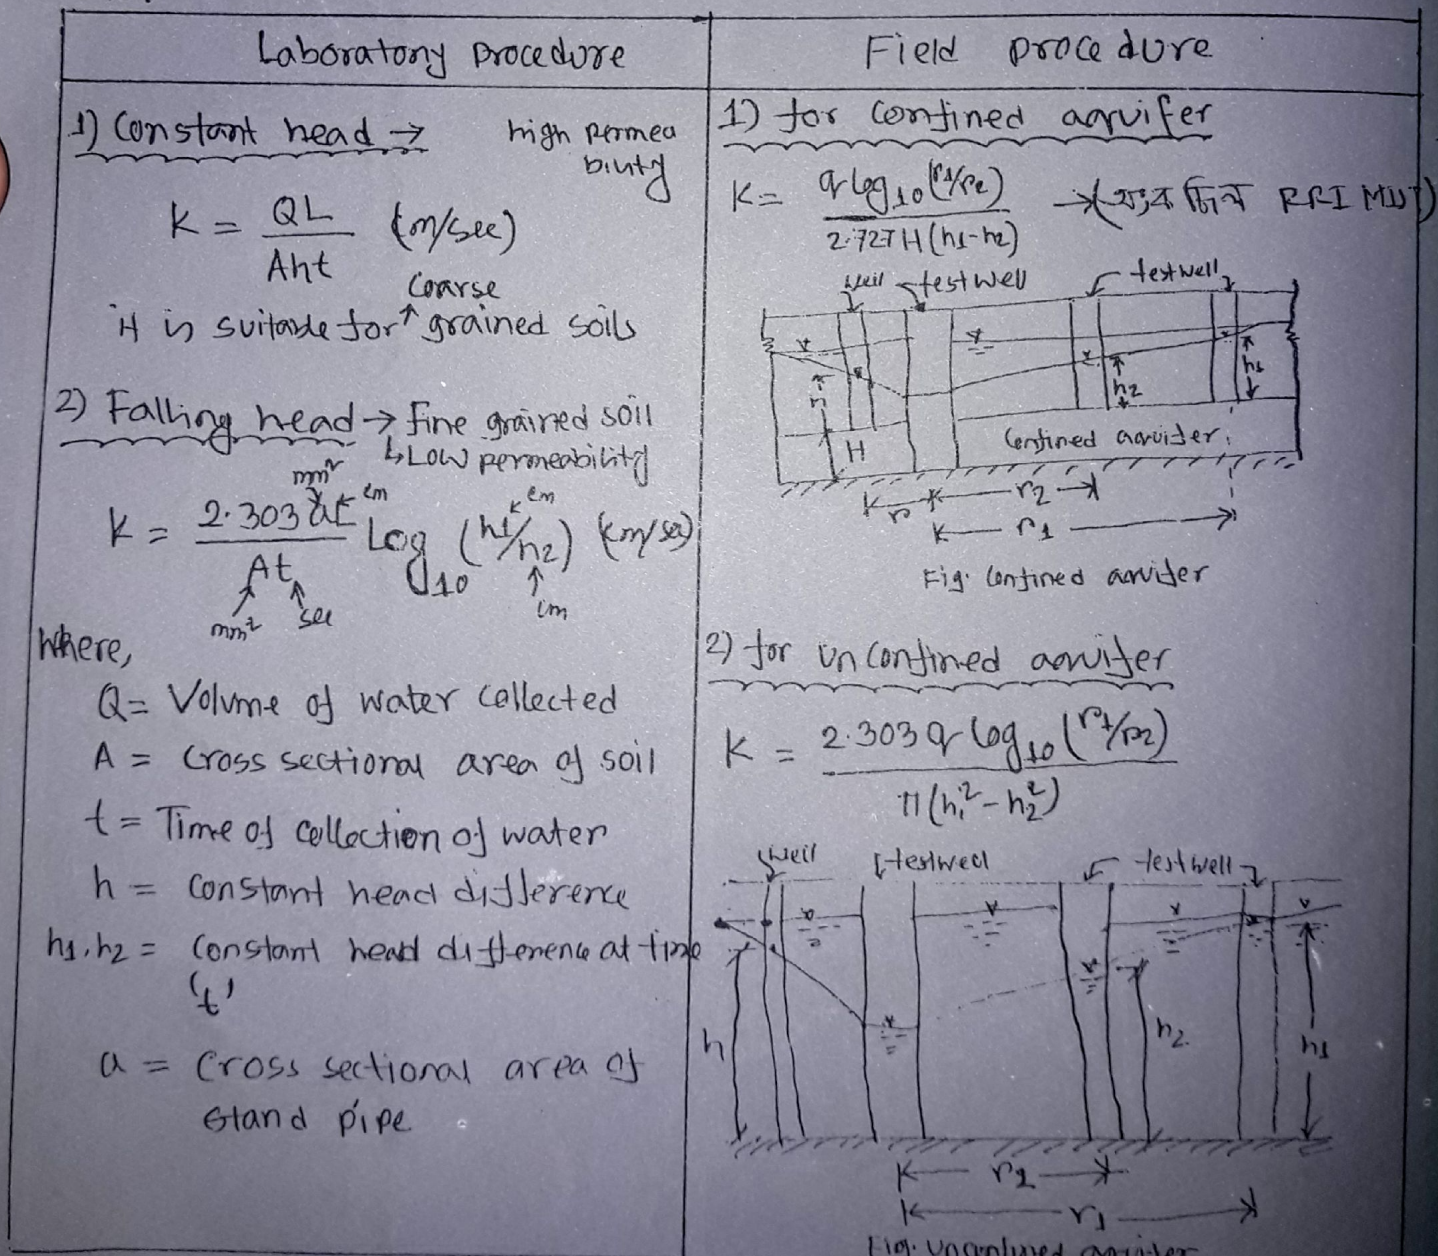 Laboratory procedure
1) Constant head → high permea
bility
K = QL/Aht (m/sec)
It is suitable for coarse grained soils
2) Falling head → fine grained soil
↳ Low permeability
K = 2.303 aL/At Log10 (h1/h2) (cm/sec)
mm² cm cm
mm² sec cm
Where,
Q = Volume of water collected
A = Cross sectional area of soil
t = Time of collection of water
h = Constant head difference
h1, h2 = Constant head difference at time
't'
a = Cross sectional area of
stand pipe
Field procedure
1) for confined aquifer
K = q log10 (r1/r2) / 2.72TH (h1-h2) → RRI
well testwell testwell
h2 h1
H Confined aquifer
r r2
r1
Fig: Confined aquifer
2) for unconfined aquifer
K = 2.303 q log10 (r1/r2) / π (h1² - h2²)
well testwell testwell
h h2 h1
r2
r1
Fig. unconfined aquifer